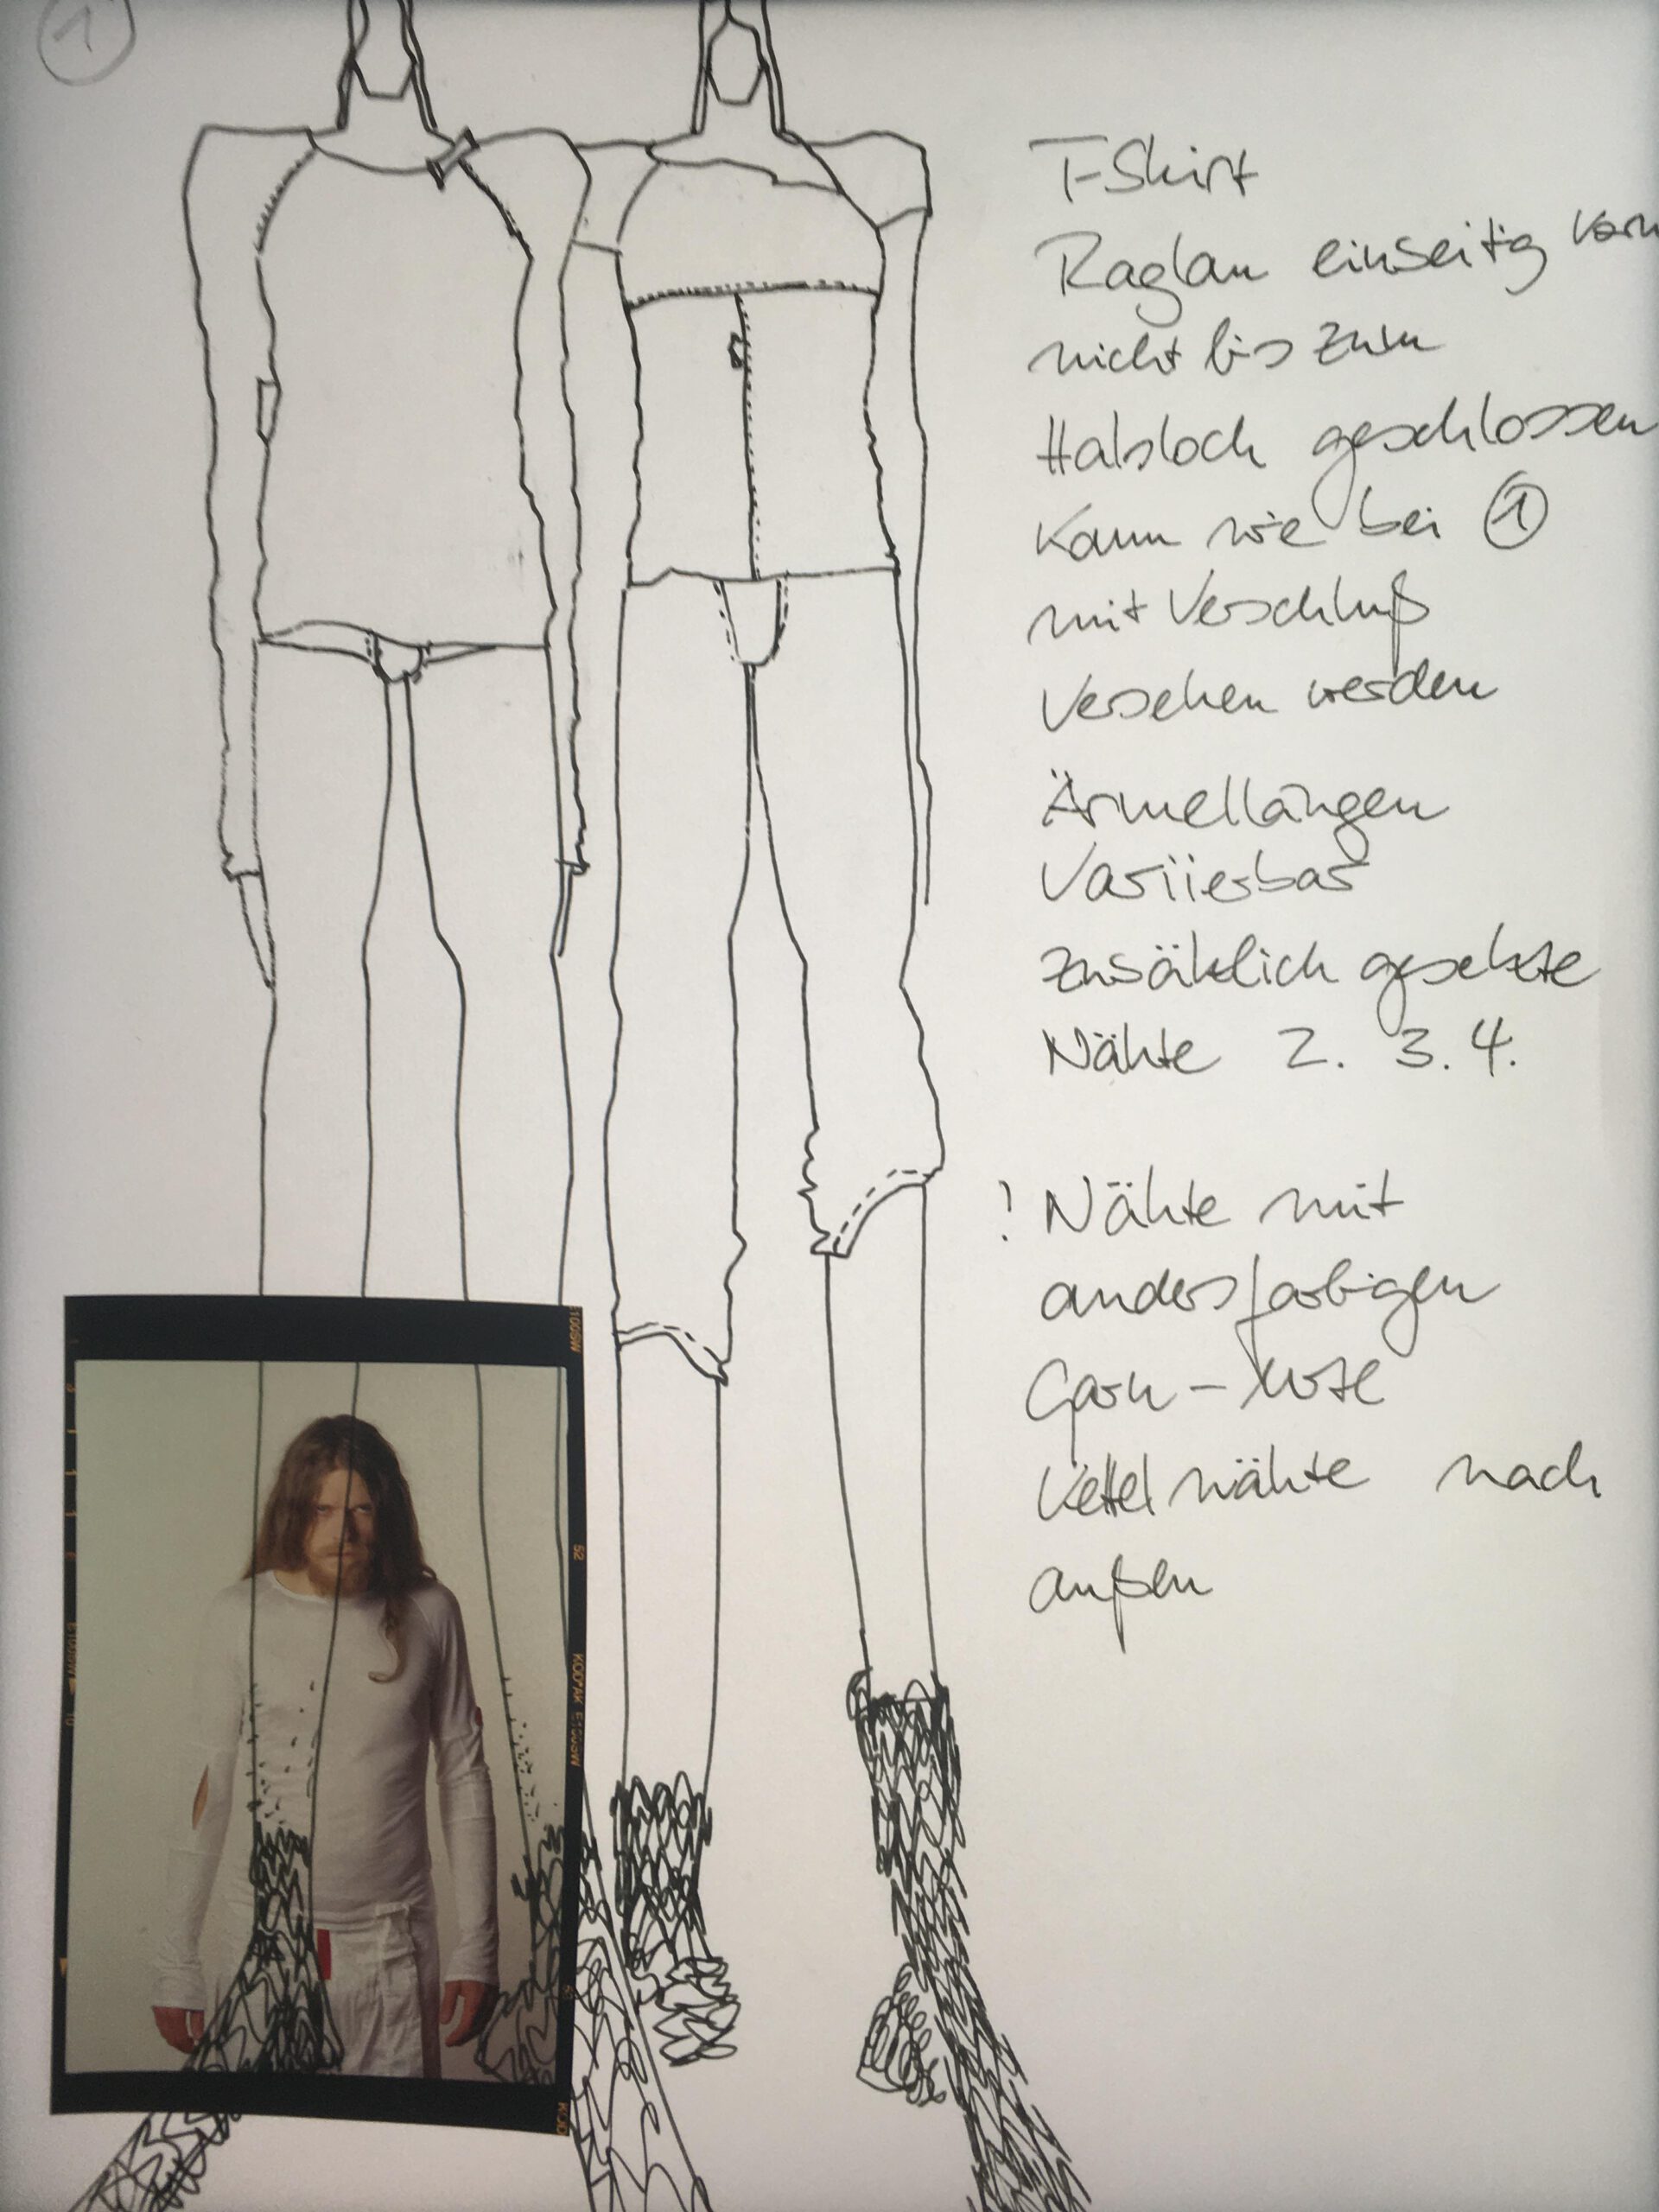 1
T-Shirt
Raglan einseitig vorn
nicht bis zum
Halsloch geschlossen
Kann wie bei 1
mit Verschluß
Versehen werden
Ärmellängen
Variierbar
zusätzlich gesetzte
Nähte 2. 3. 4.
! Nähte mit
andersfarbigen
Garn –
Kettelnähte nach
außen
E100SW
52
KODAK E100SW